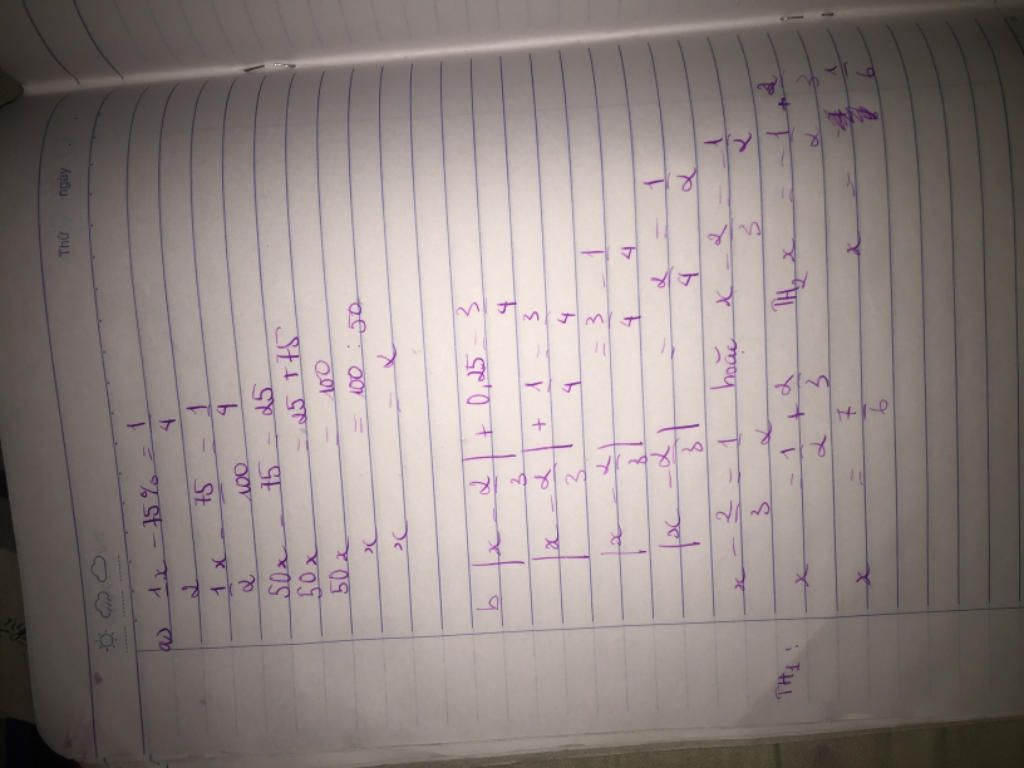 Thứ ngày
a) 1/2 x - 75% = 1/4
1/2 x - 75/100 = 1/4
50x - 75 = 25
50x = 25 + 75
50x = 100
x = 100 : 50
x = 2
b |x - 2/3| + 0,25 = 3/4
|x - 2/3| + 1/4 = 3/4
|x - 2/3| = 3/4 - 1/4
|x - 2/3| = 2/4 = 1/2
x - 2/3 = 1/2 hoặc x - 2/3 = -1/2
TH1: x = 1/2 + 2/3 TH2 x = -1/2 + 2/3
x = 7/6 x = 1/6